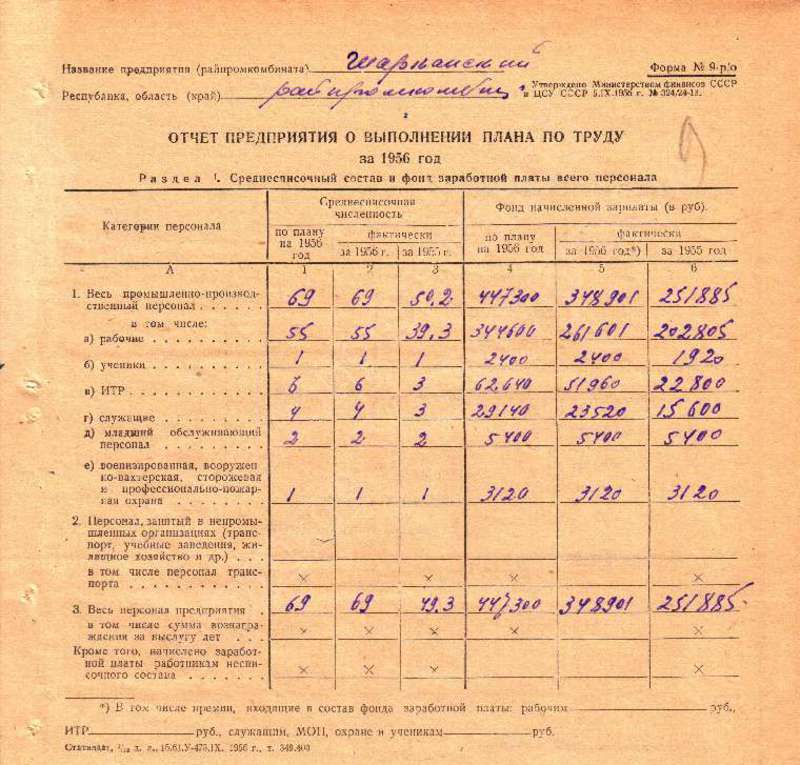 Название предприятия (райпромкомбината) Шарьинский
Форма № 9-р/о
Республика, область (край) райпромкомбинат
Утверждено Министерством финансов СССР
и ЦСУ СССР 5.IX.1956 г. № 324/24-18.
ОТЧЕТ ПРЕДПРИЯТИЯ О ВЫПОЛНЕНИИ ПЛАНА ПО ТРУДУ
за 1956 год
9
Раздел I. Среднесписочный состав и фонд заработной платы всего персонала
Категории персонала
Среднесписочная численность
Фонд начисленной зарплаты (в руб).
по плану на 1956 год
фактически
по плану на 1956 год
фактически
за 1956 г. за 1955 г. за 1956 год*) за 1955 год
А 1 2 3 4 5 6
1. Весь промышленно-производ-
ственный персонал . . . . . . 69 69 50,2 447300 348901 251885
в том числе:
а) рабочие . . . . . . . . . 55 55 39,3 344600 261601 202805
б) ученики . . . . . . . . . 1 1 1 2400 2400 1920
в) ИТР . . . . . . . . . . . 6 6 3 62640 51960 22800
г) служащие . . . . . . . . 4 4 3 29140 23520 15600
д) младший обслуживающий
персонал . . . . . . . . . 2 2 2 5400 5400 5400
е) военизированная, вооружен-
но-вахтерская, сторожевая
и профессионально-пожар-
ная охрана . . . . . . . . 1 1 1 3120 3120 3120
2. Персонал, занятый в непромы-
шленных организациях (транс-
порт, учебные заведения, жи-
лищное хозяйство и др.) . . .
в том числе персонал транс-
порта . . . . . . . . . . . × × × ×
3. Весь персонал предприятия . 69 69 49,3 447300 348901 251885
в том числе сумма вознагра-
ждения за выслугу лет . . . × × × × ×
Кроме того, начислено заработ-
ной платы работникам неспи-
сочного состава . . . . . . . × × × ×
*) В том числе премии, входящие в состав фонда заработной платы: рабочим руб.,
ИТР руб., служащим, МОП, охране и ученикам руб.
1956 г., т. 349.400